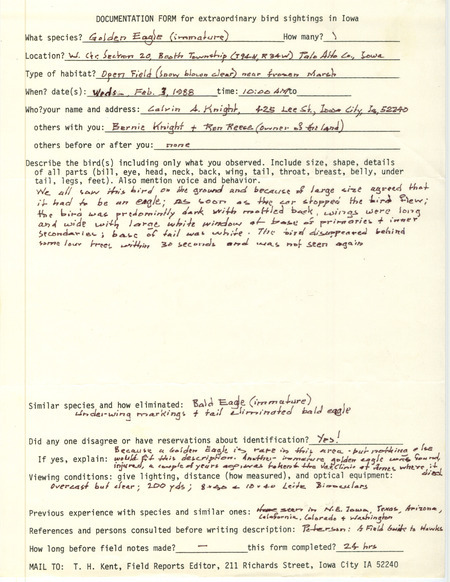 DOCUMENTATION FORM for extraordinary bird sightings in Iowa
What species? Golden Eagle (immature) How many? 1
Location? W. Ctr, Section 20, Booth Township (T94N, R34W) Palo Alto Co, Iowa
Type of habitat? Open Field (snow blown clear) near frozen Marsh
When? date(s): Weds- Feb. 3, 1988 time: 10:00 AM to
Who?your name and address: Calvin A. Knight, 425 Lee St, Iowa City, Ia, 52240
others with you: Bernie Knight + Ron Reese (owner of the land)
others before or after you: none
Describe the bird(s) including only what you observed. Include size, shape, details
of all parts (bill, eye, head, neck, back, wing, tail, throat, breast, belly, under
tail, legs, feet). Also mention voice and behavior.
We all saw this bird on the ground and because of large size agreed that
it had to be an eagle; As soon as the car stopped the bird flew;
the bird was predominitly dark with mottled back. wings were long
and wide with large white window at base of primaries + inner
secondaries; base of tail was white. The bird disappeared behind
some low trees within 30 seconds and was not seen again
Similar species and how eliminated: Bald Eagle (immature)
under-wing markings + tail eliminated bald eagle
Did any one disagree or have reservations about identification? Yes!
Because a Golden Eagle is rare in this area - but nothing else
If yes, explain: would fit this description. Another immature golden eagle was found,
injured, a couple of years ago was taken to the Vet Clinic at Ames where it died
Viewing conditions: give lighting, distance (how measured), and optical equipment:
Overcast but clear; 200 yds; 8x40 & 10x40 Leitz Binoculars
Previous experience with species and similar ones: Have seen in N.E. Iowa, Texas, Arizona,
California, Colorado + Washington
References and persons consulted before writing description: Peterson: A Field Guide to Hawks
How long before field notes made? — this form completed? 24 hrs
MAIL TO: T. H. Kent, Field Reports Editor, 211 Richards Street, Iowa City IA 52240